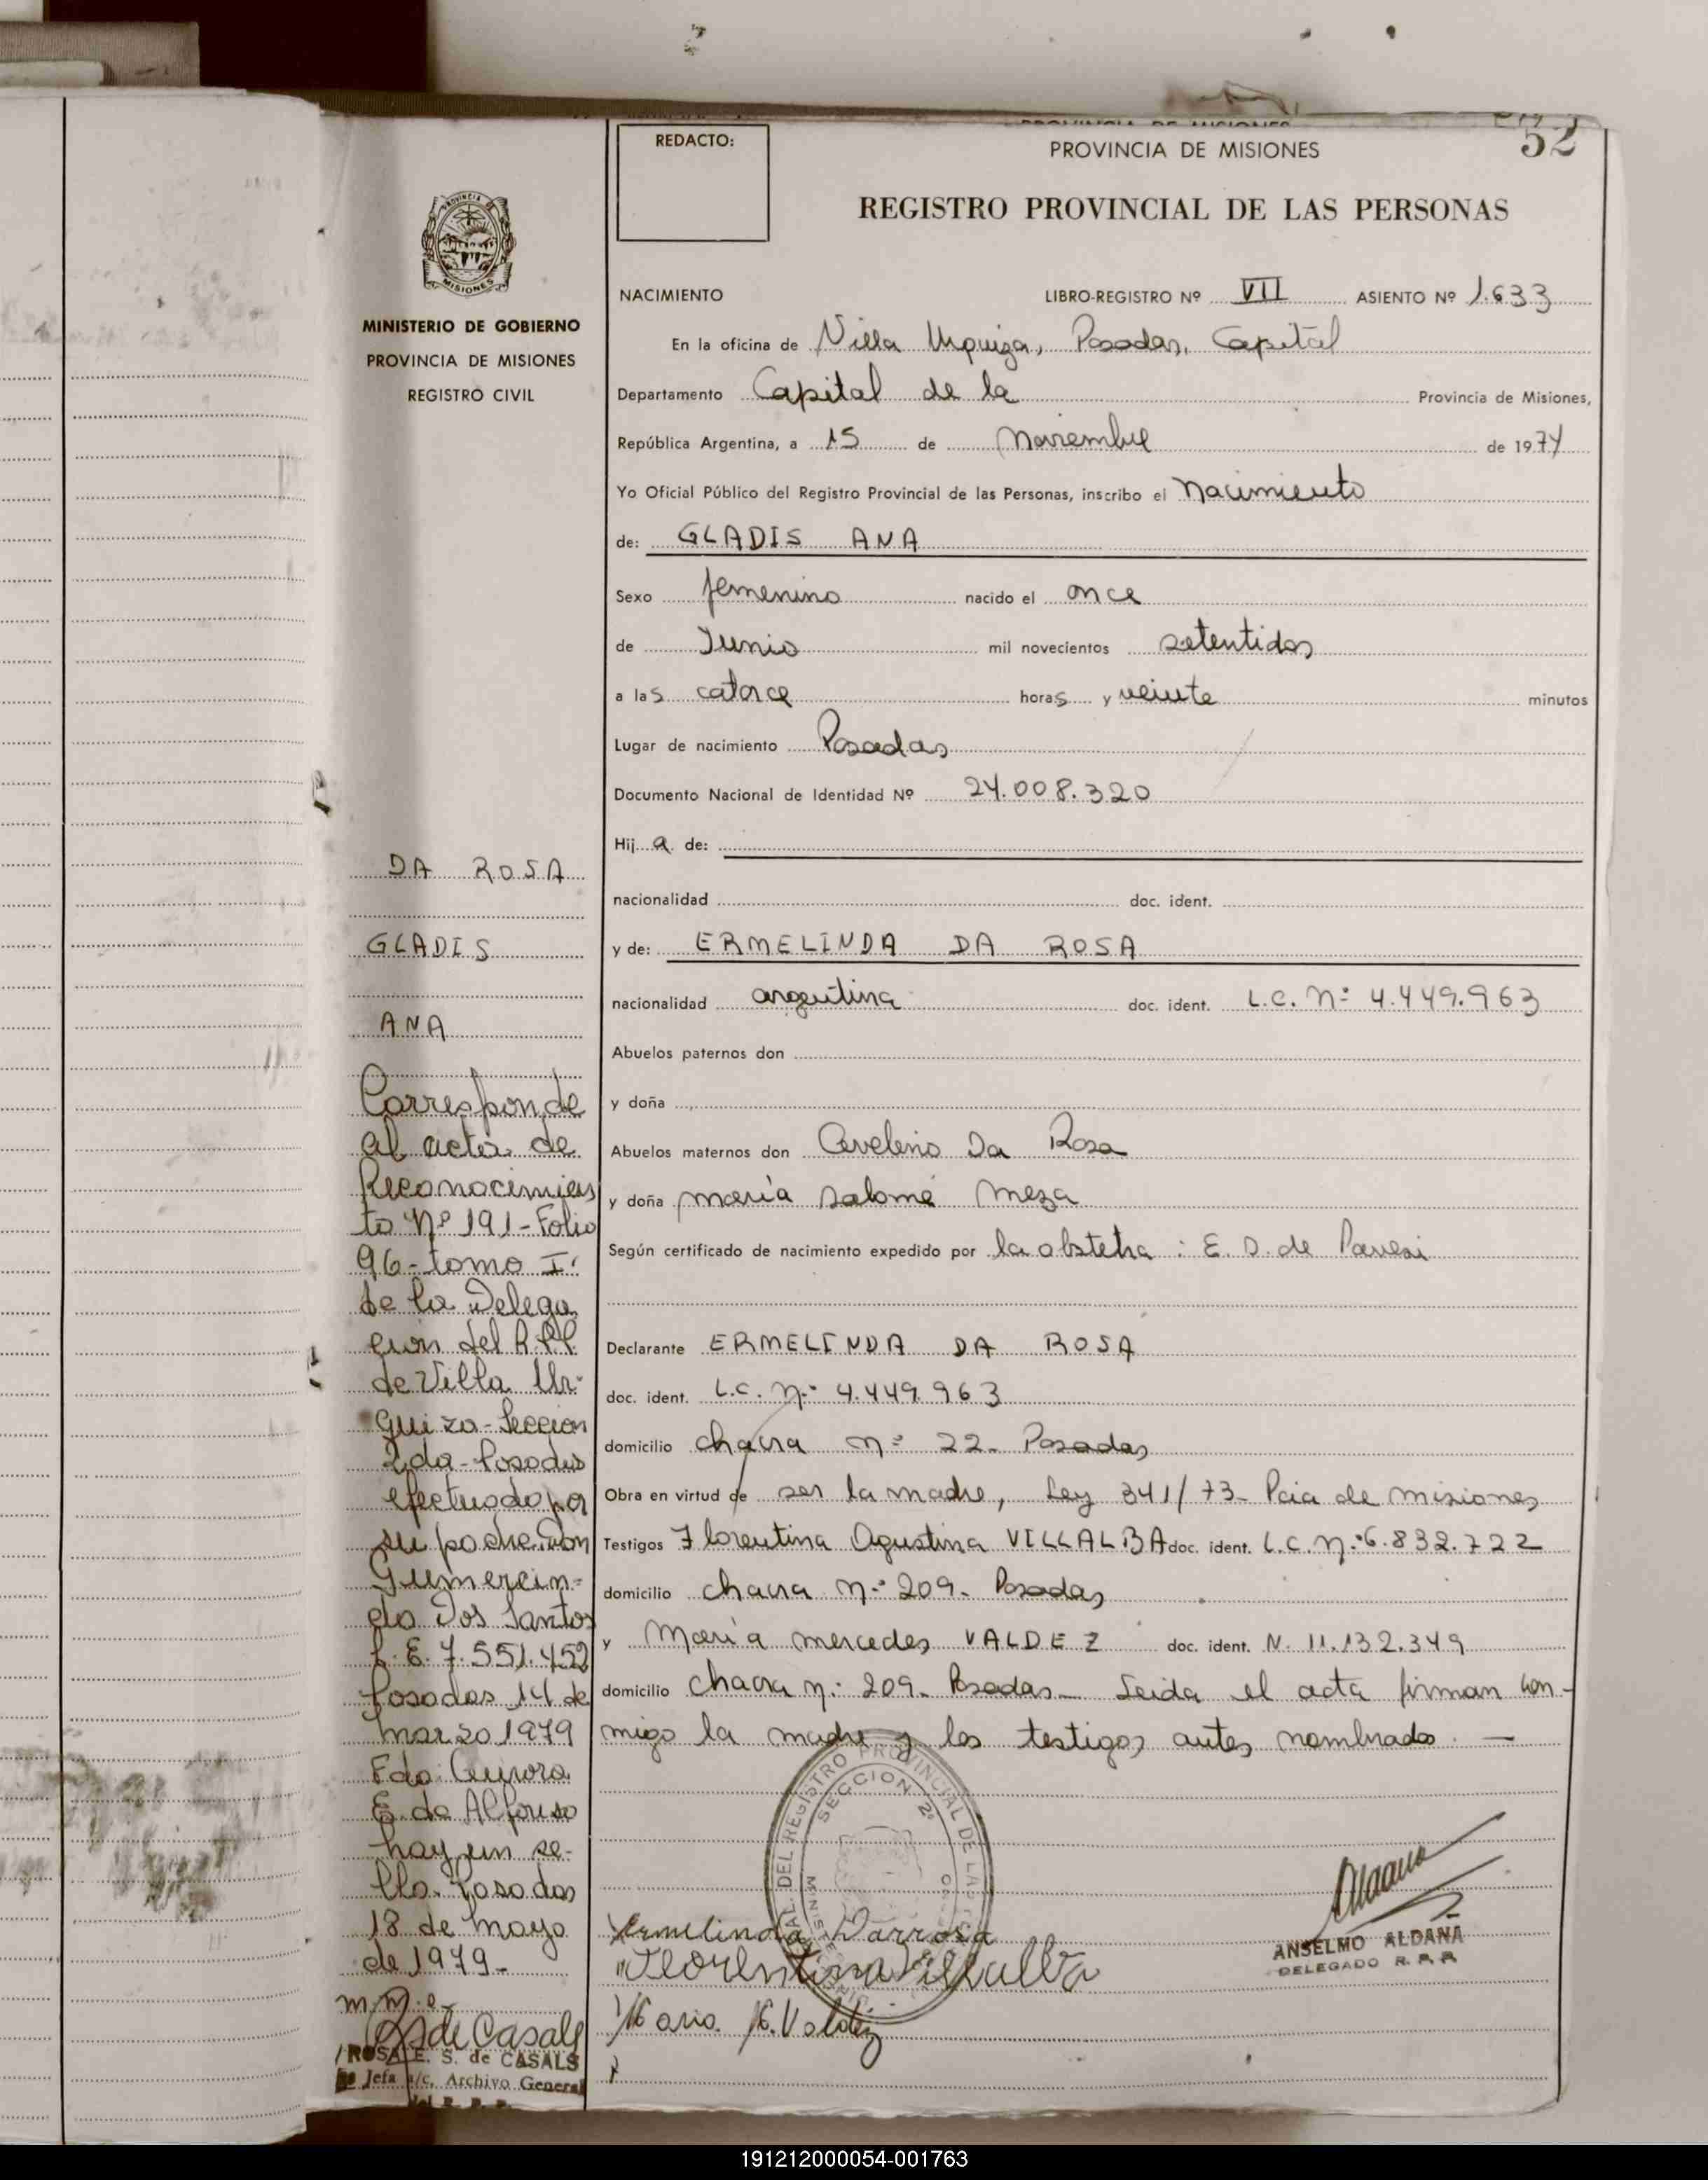 52
REDACTO:
PROVINCIA DE MISIONES
REGISTRO PROVINCIAL DE LAS PERSONAS
MINISTERIO DE GOBIERNO
PROVINCIA DE MISIONES
REGISTRO CIVIL
NACIMIENTO LIBRO-REGISTRO Nº VII ASIENTO Nº 1.633
En la oficina de Villa Urquiza, Posadas, Capital
Departamento Capital de la Provincia de Misiones,
República Argentina, a 15 de Noviembre de 1974
Yo Oficial Público del Registro Provincial de las Personas, inscribo el Nacimiento
de: GLADIS ANA
Sexo femenino nacido el once
de Junio mil novecientos setentidos
a las catorce horas y veinte minutos
Lugar de nacimiento Posadas
Documento Nacional de Identidad Nº 24.008.320
Hija de:
nacionalidad doc. ident.
y de: ERMELINDA DA ROSA
nacionalidad argentina doc. ident. L.C. Nº 4.449.963
Abuelos paternos don
y doña
Abuelos maternos don Avelino Da Rosa
y doña María Salomé Meza
Según certificado de nacimiento expedido por la obstetra: E. D. de Pavesi
Declarante ERMELINDA DA ROSA
doc. ident. L.C. Nº 4.449.963
domicilio chacra nº 22- Posadas
Obra en virtud de ser la madre, Ley 341/73- Pcia de misiones
Testigos Florentina Agustina VILLALBA doc. ident. L.C. Nº 6.832.722
domicilio chacra nº 209- Posadas
y María mercedes VALDEZ doc. ident. N. 11.132.349
domicilio chacra nº 209- Posadas- Leida el acta firman con-
migo la madre y los testigos antes nombrados. —
DA ROSA
GLADIS
ANA
Corresponde
al acta de
Reconocimien
to Nº 191-Folio
96-tomo I.
de la Delega
cion del R.P.P.
de Villa Ur-
quiza-Seccion
2da-Posadas
efectuado por
su padre Don
Gumercin-
do Dos Santos
L.E. 7.551.452
Posadas 14 de
marzo 1979
Fdo: Aurora
E. de Alfonso
hay un se-
llo. Posadas
18 de mayo
de 1979-
de Casals
ROSA E. S. de CASALS
Jefa a/c. Archivo General
DEL REGISTRO PROVINCIAL DE LAS
SECCION 2º
Ermelinda Darrosa
Florentina Villalba
Maria M. Valdez
ANSELMO ALDANA
DELEGADO R. P. P.
191212000054-001763